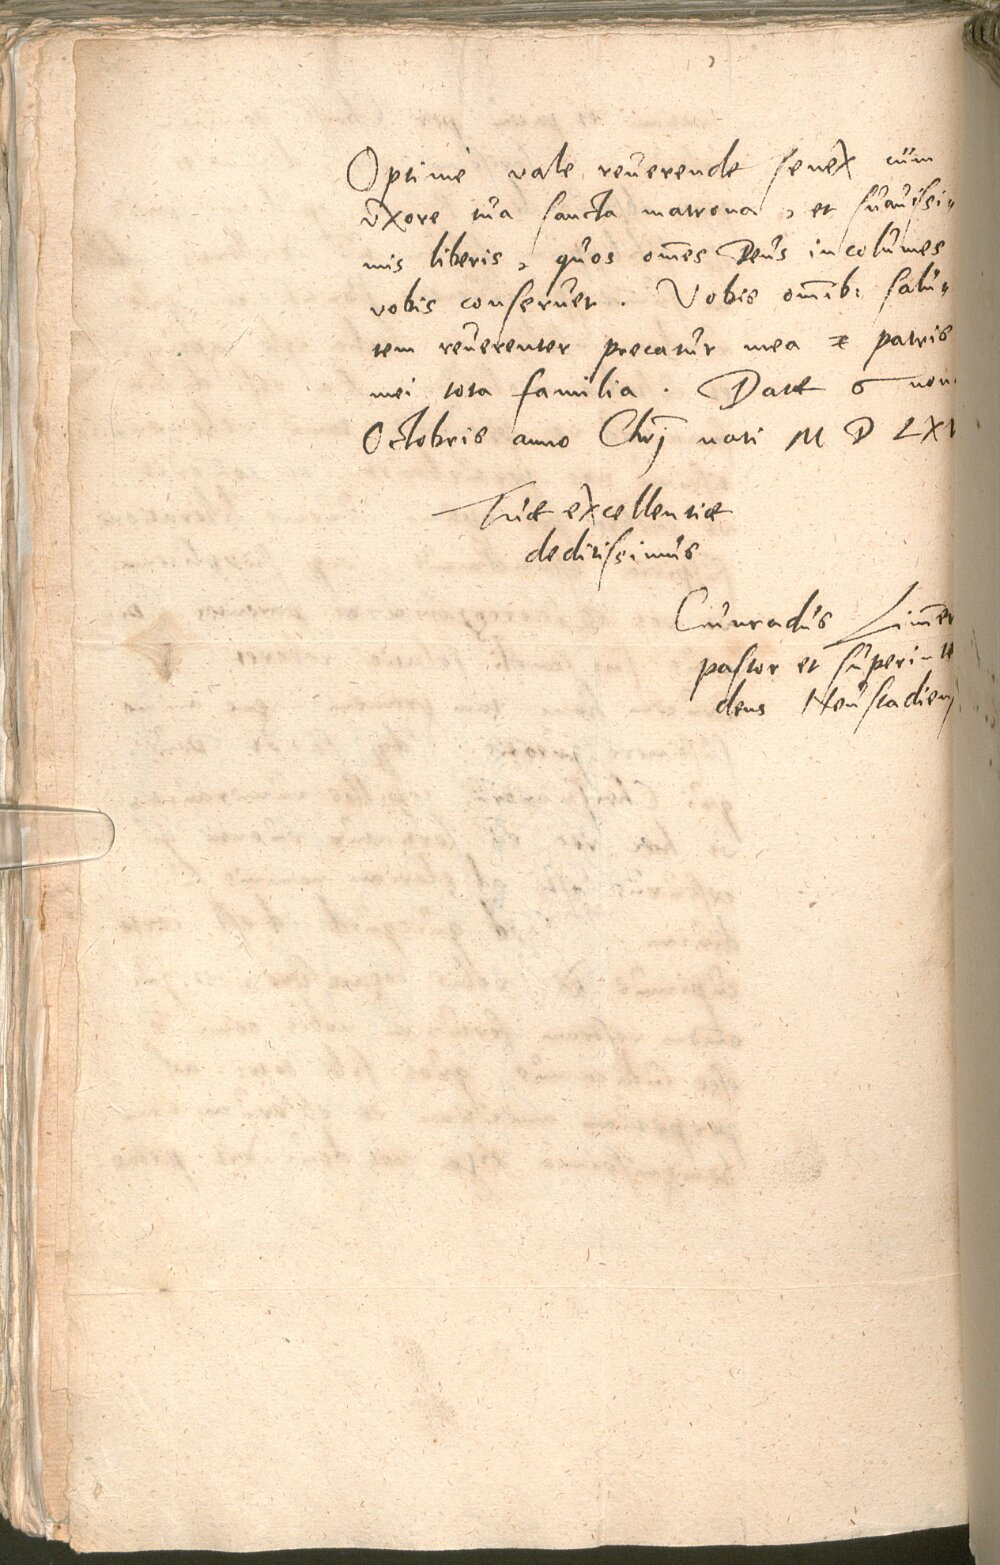 Optime vale reuerende senex cum
vxore tua sancta matrona, et suauissi-
mis liberis, quos om̄es Deus incolumes
vobis conseruet. Vobis om̄ib: salu-
tem reuerenter precatur mea & patris
mei tota familia. Datæ 6 non
Octobris anno Chrj nati M D LX
Tuæ excellentiæ
deditissimus
Cunradus Lim̄er
pastor et superi-te
dens Neustadien